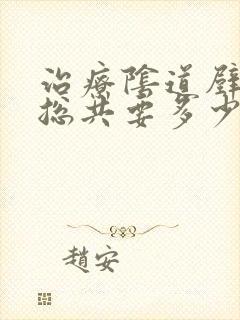 治療陰道壁
總共要多少
趙安